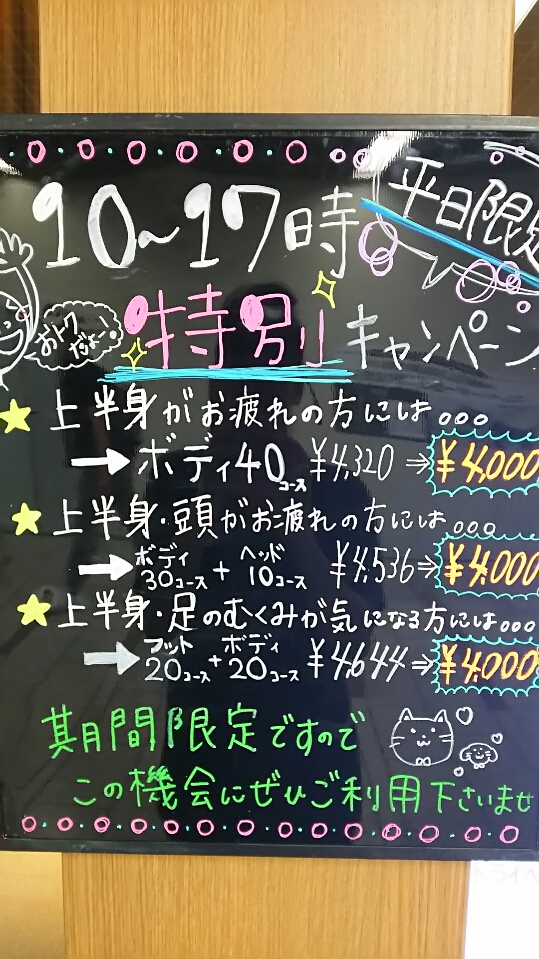 平日限定
10~17時
おトクだよー!
特別キャンペーン
上半身がお疲れの方には。。。
→ボディ40コース ¥4,320⇒¥4,000
上半身・頭がお疲れの方には。。。
→ボディ30コース+ヘッド10コース ¥4,536⇒¥4,000
上半身・足のむくみが気になる方には。。。
→フット20コース+ボディ20コース ¥4,644⇒¥4,000
期間限定ですので
この機会にぜひご利用下さいませ